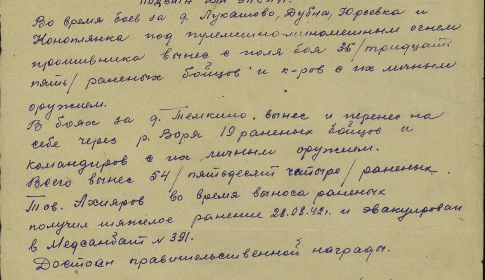 Во время боев за д. Лукашово, Дубна, Юрсевка и
Коноплянка под пулеметно-минометным огнем
противника вынес с поля боя 35/тридцать
пять/ раненых бойцов и к-ров с их личным
оружием.
В боях за д. Темкино, вынес и перенес на
себе через р. Воря 19 раненых бойцов и
командиров с их личным оружием.
Всего вынес 54/пятьдесят четыре/ раненых.
Тов. Ахияров во время выноса раненых
получил тяжелое ранение 28.08.42г. и эвакуирован
в Медсанбат N 391.
Достоин правительственной награды.